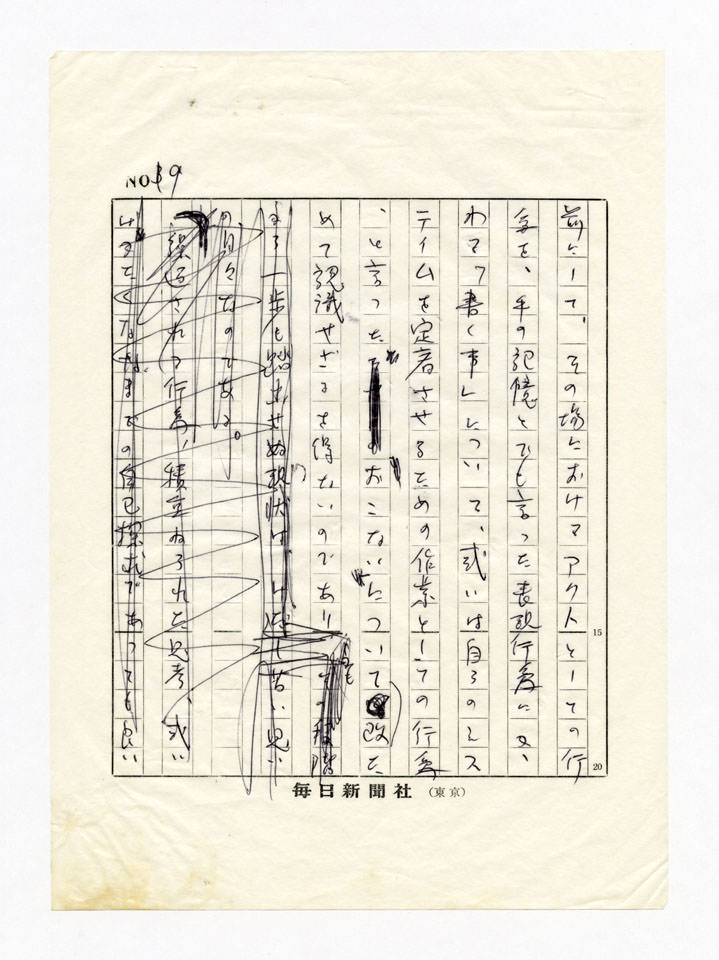 NO 9
前にして、その場においてアクトとしての行
為を、手の記憶とでも言った表現行為に又、
わたって書く事しについて、或いは自らのシス
テイムを定着させるための作業としての行為
、と言った おこないについて 改た
めて認識せざるを得ないのであり
一歩も踏出せぬ現状は 苦い思い
の日々なのである。
繰返される行為、積重ねられた思考、或い
はたなるまでの自己探求であっても良い
15
20
毎日新聞社（東京）